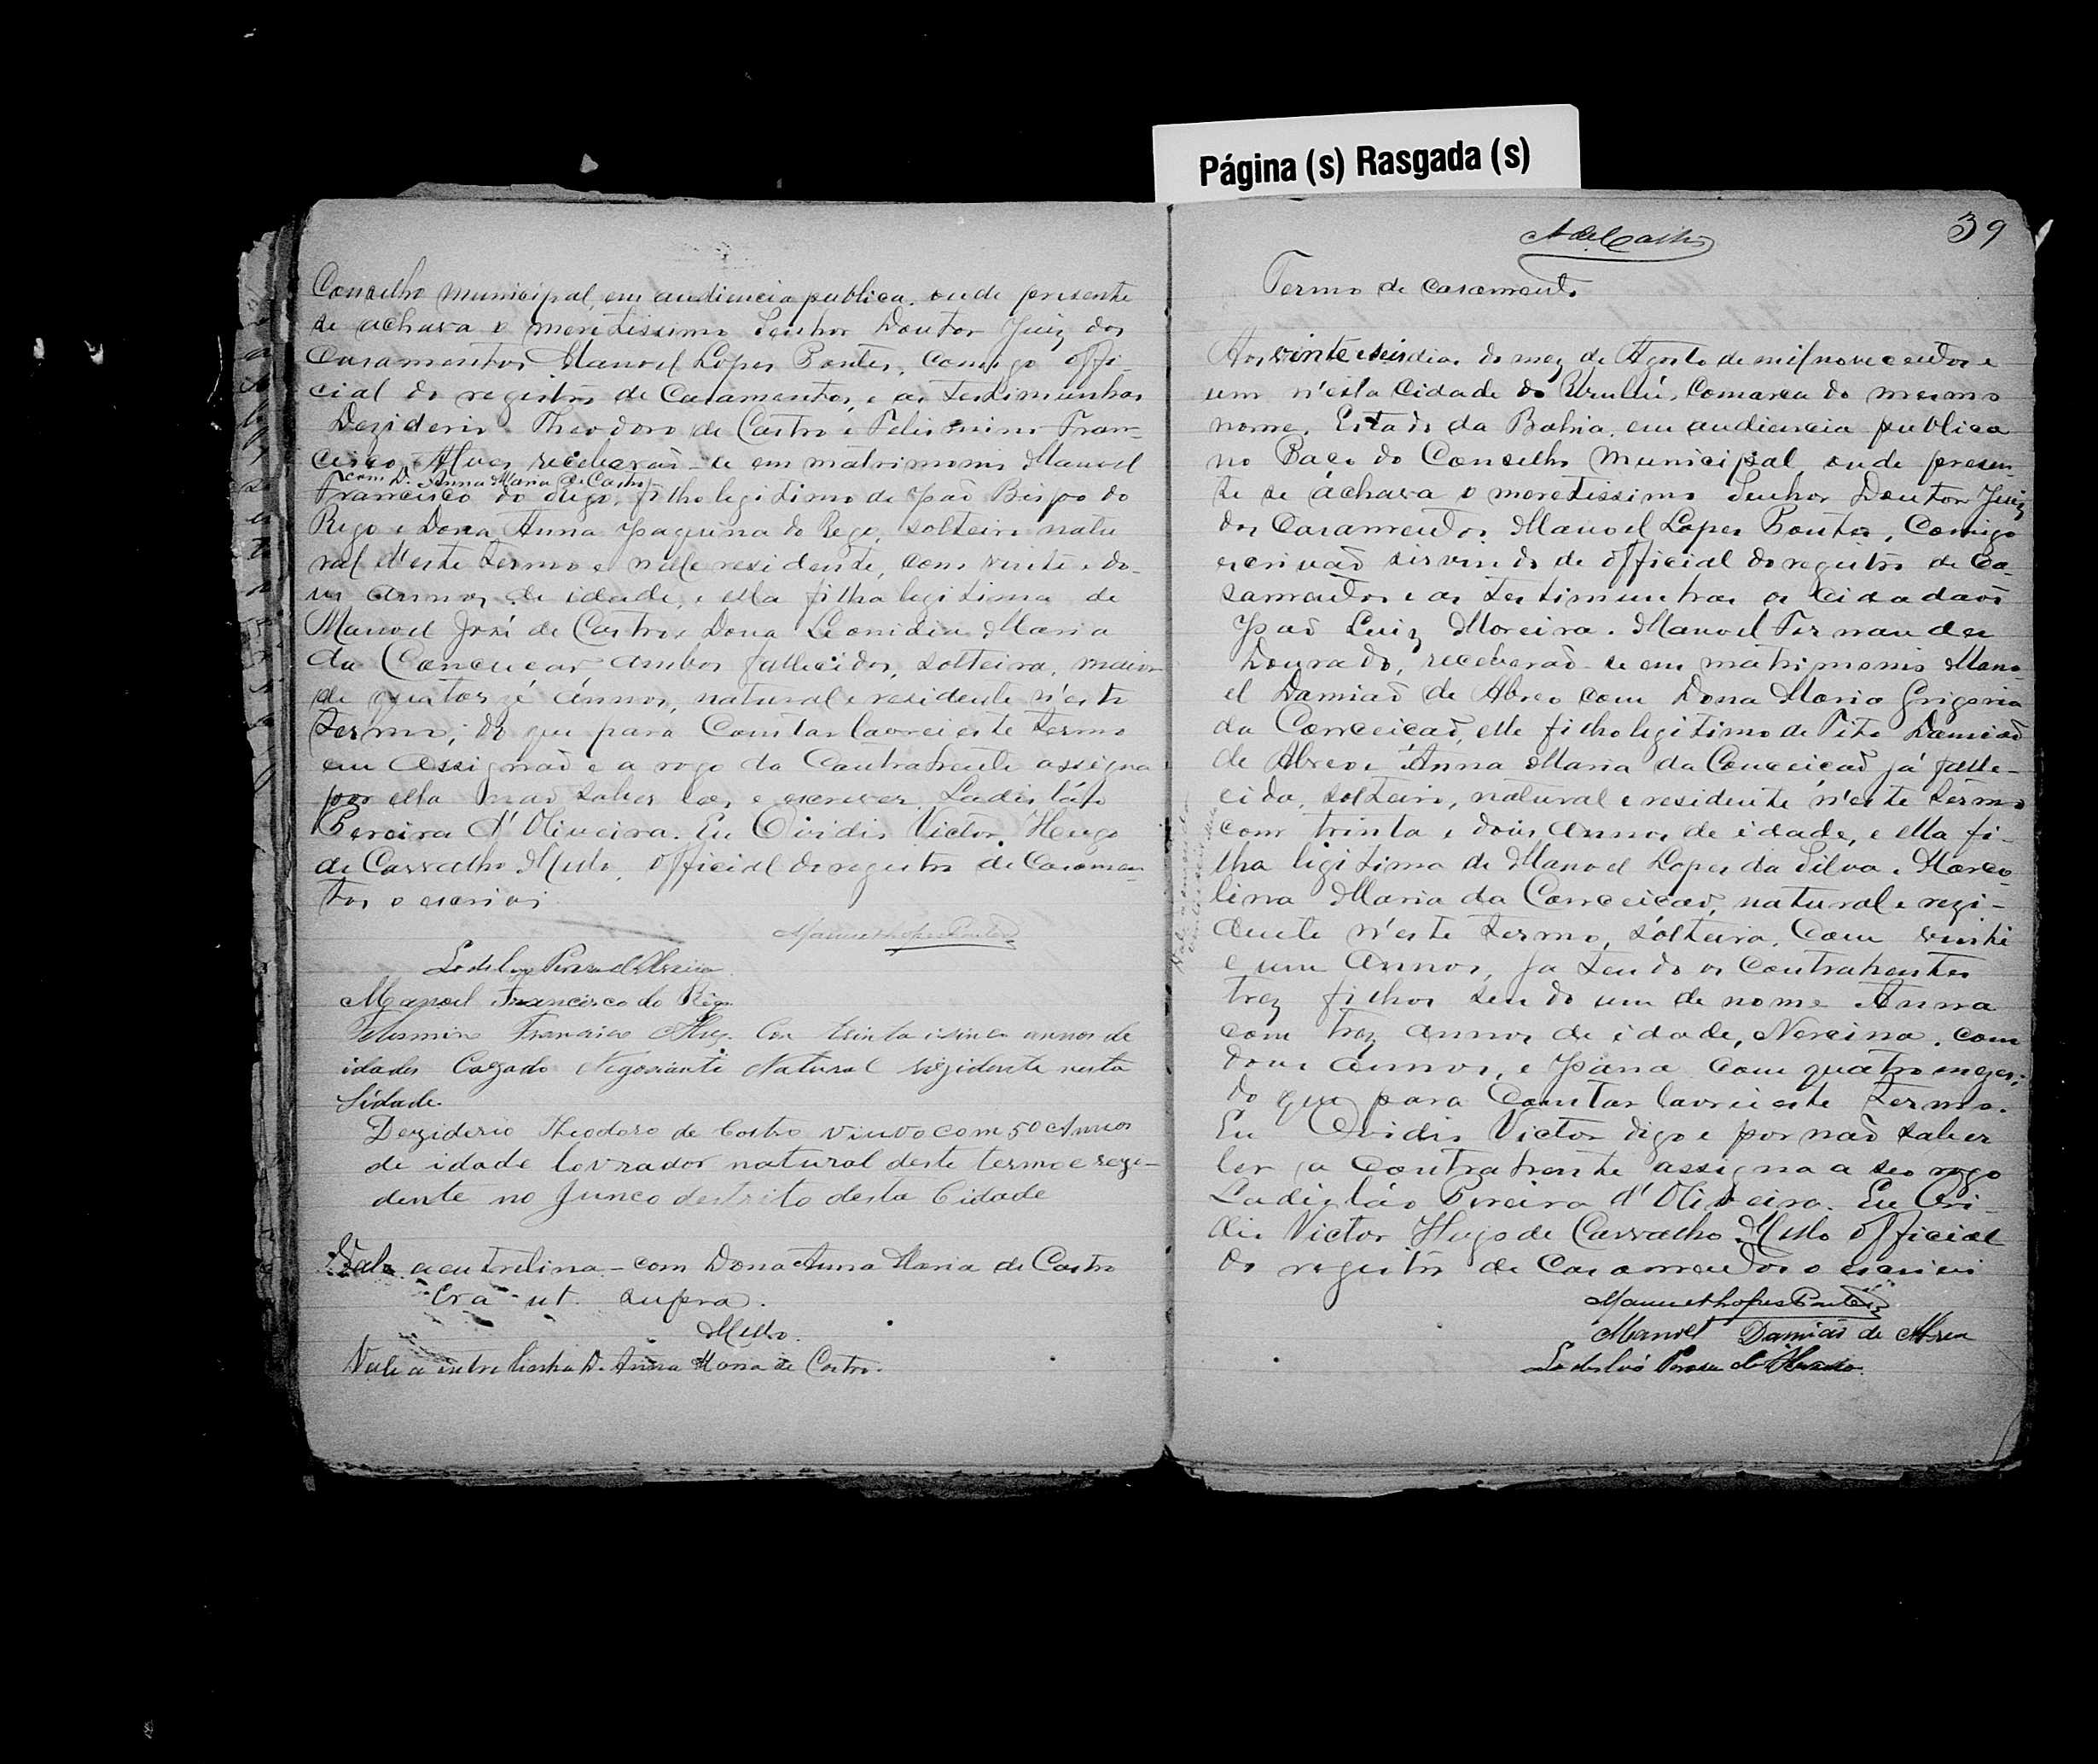 Página (s) Rasgada (s)
Conselho municipal, em audiencia publica, onde presente
se achava o meretissimo Senhor Doutor Juiz dos
Casamentos Manoel Lopes Pontes, comigo offi-
cial do registro de Casamentos, e as testimunhas
Deziderio Theodoro de Castro e Felismino Fran-
cisco Alves receberaõ-se em matrimonio Manoel
com D. Anna Maria de Castro
Francisco do Rego, filho legitimo de Joaõ Bispo do
Rego e Dona Anna Joaquina do Rego, solteiro natu
ral d'este termo e nelle residente, com vinte e do-
us annos de idade, e ella filha legitima de
Manoel José de Castro e Dona Leonidia Maria
da Conceiçaõ ambos fallecidos, solteira, maior
de quatorzé annos, natural e residente n'este
termo; do que para Constar lavrei este termo
em assignaõ e a rogo da Contrahente assigna
por ella naõ saber ler, e escrever, Ladisláo
Pereira d'Oliveira. Eu Ovidio Victor Hugo
de Carvalho Mello, official do registro de Casamen-
tos o escrivi
Manuel Lopes Pontes
Ladislao Pereira d'Oliveira
Manoel Francisco do Rego
Felismino Francisco Alves. Com trinta e sinco annos de
idades Cazado Negosiante Natural rezidente nesta
Sidade.
Deziderio Theodoro de Costro viuvo com 50 Annos
de idade lavrador natural deste termo e rezi-
dente no Junco destrito desta Cidade
Valo a entrelina - com Dona Anna Maria de Castro
Era ut supra.
Mello.
Vale a entre linha D. Anna Maria de Castro.
39
A. de Castro
Termo de casamento
Aos vinte e seis dias do mez de Agosto de mil nove centos e
um n'esta Cidade do Urubú, Comarca do mesmo
nome, Estado da Bahia, em audiencia publica
no Paço do Conselho Municipal, onde presen-
te se áchava o meretissimo Senhor Doutor Juiz
dos Casamentos Manoel Lopes Pontes, Comigo
escrivaõ servindo de official do registro de Ca-
samentos e as testimunhas os Cidadaõs
Joaõ Luiz Moreira. Manoel Fernandes
Dourado, receberaõ-se em matrimonio Mano
el Damiaõ de Abreo com Dona Maria Grigoria
da Conceicaõ, elle filho legitimo de Tito Damiaõ
de Abreo e Anna Maria da Conceicaõ já falle-
cida, solteiro, natural e residente n'este termo
com trinta e dois annos de idade, e ella fi-
lha ligitima de Manoel Lopes da Silva e Marco-
lina Maria da Conceicaõ, natural e rezi-
dente n'este termo, sólteira, Com vinte
e um annos, ja tendo os Contrahentes
trez filhos sendo um de nome Anna
com trez annos de idade, Nercina, com
dous annos, e Joana com quatro mezes;
do que para Constar lavrei este termo.
Eu Ovidio Victor digo e por naõ saber
ler a Contrahente assigna a seo rogo
Ladisláo Pereira d'Oliveira. Eu Ovi-
dio Victor Hugo de Carvalho Mello official
do registro de Casamentos o escrivi
Manuel Lopes Pontes
Manoel Damiaõ de Abreu
Ladisláo Pereira de Oliveira.
Vale a emenda